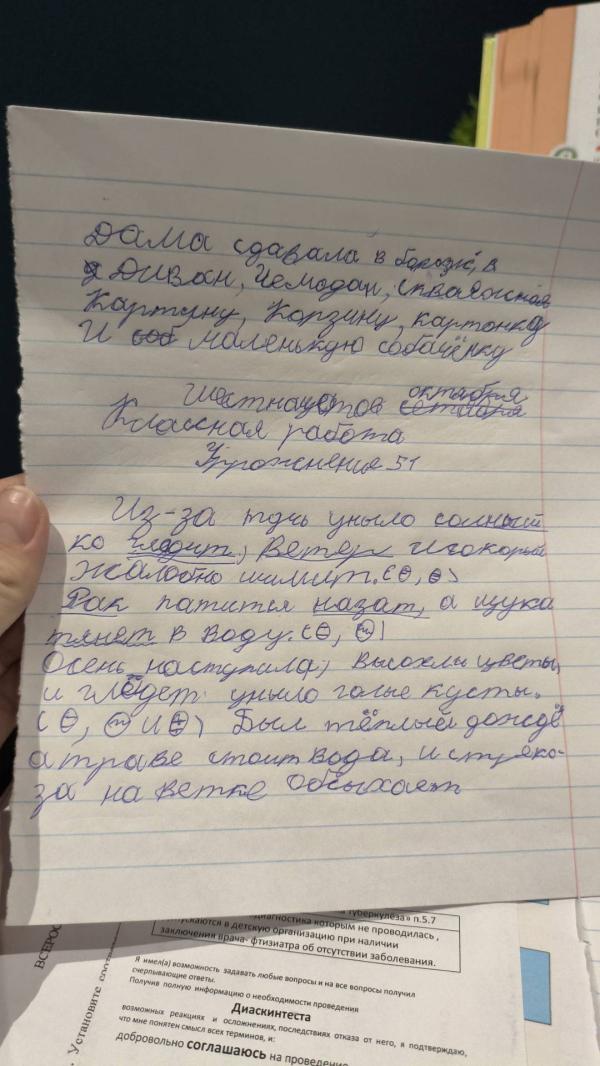 Дама сдавала в богазс, в
Диван, Чемодан, сквасожная
Картину, Корзину, картонку
И соб маленькую собачёнку
октября
Шестнацатое сетнобря
Классная работа
Упрожнения 51
Из-за тучь уныло солный
ко гледит, Ветерк игокорый
жалобно шимит. (⊖, ⊖)
Рак патится назат, а щука
тянет в воду. (⊖, )
Осень наступила, высохли цветы,
и гледет уныло голые кусты.
(⊖, и ) Был тёплый дождь
а траве стоит вода, и стреко-
за на ветке обсыхает
ВСЕРОС
Установите
туберкулёза» п.5.7
диагностика которым не проводилась,
пускаются в детскую организацию при наличии
заключения врача- фтизиатра об отсутствии заболевания.
Я имел(а) возможность задавать любые вопросы и на все вопросы получил
счерпывающие ответы.
Получив полную информацию о необходимости проведения
Диаскинтеста
возможных реакциях и осложнениях, последствиях отказа от него, я подтверждаю,
что мне понятен смысл всех терминов, и:
добровольно соглашаюсь на проведение